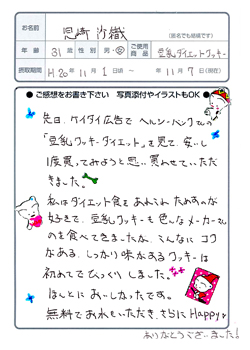 お名前 児崎 沙織 (匿名でも結構です)
年齢 31歳 男・女 ご使用商品 豆乳ダイエットクッキー
摂取期間 H.20年11月1日頃 ～ 年11月7日(現在)
● ご感想をお書き下さい 写真添付やイラストもOK ●
先日、ケイタイ広告で ヘルシーバンクさんの
「豆乳クッキーダイエット」を見て、安いし
1度買ってみようと思い買わせていただ
きました。
私はダイエット食をあれこれためすのが
好きで、豆乳クッキーも色んなメーカーさん
のを食べてきましたが、こんなに コク
がある、しっかり味がある クッキーは
初めてでびっくりしました。
ほんとにおいしかったです。
無料であれもいただき、さらに Happy
ありがとうございました!